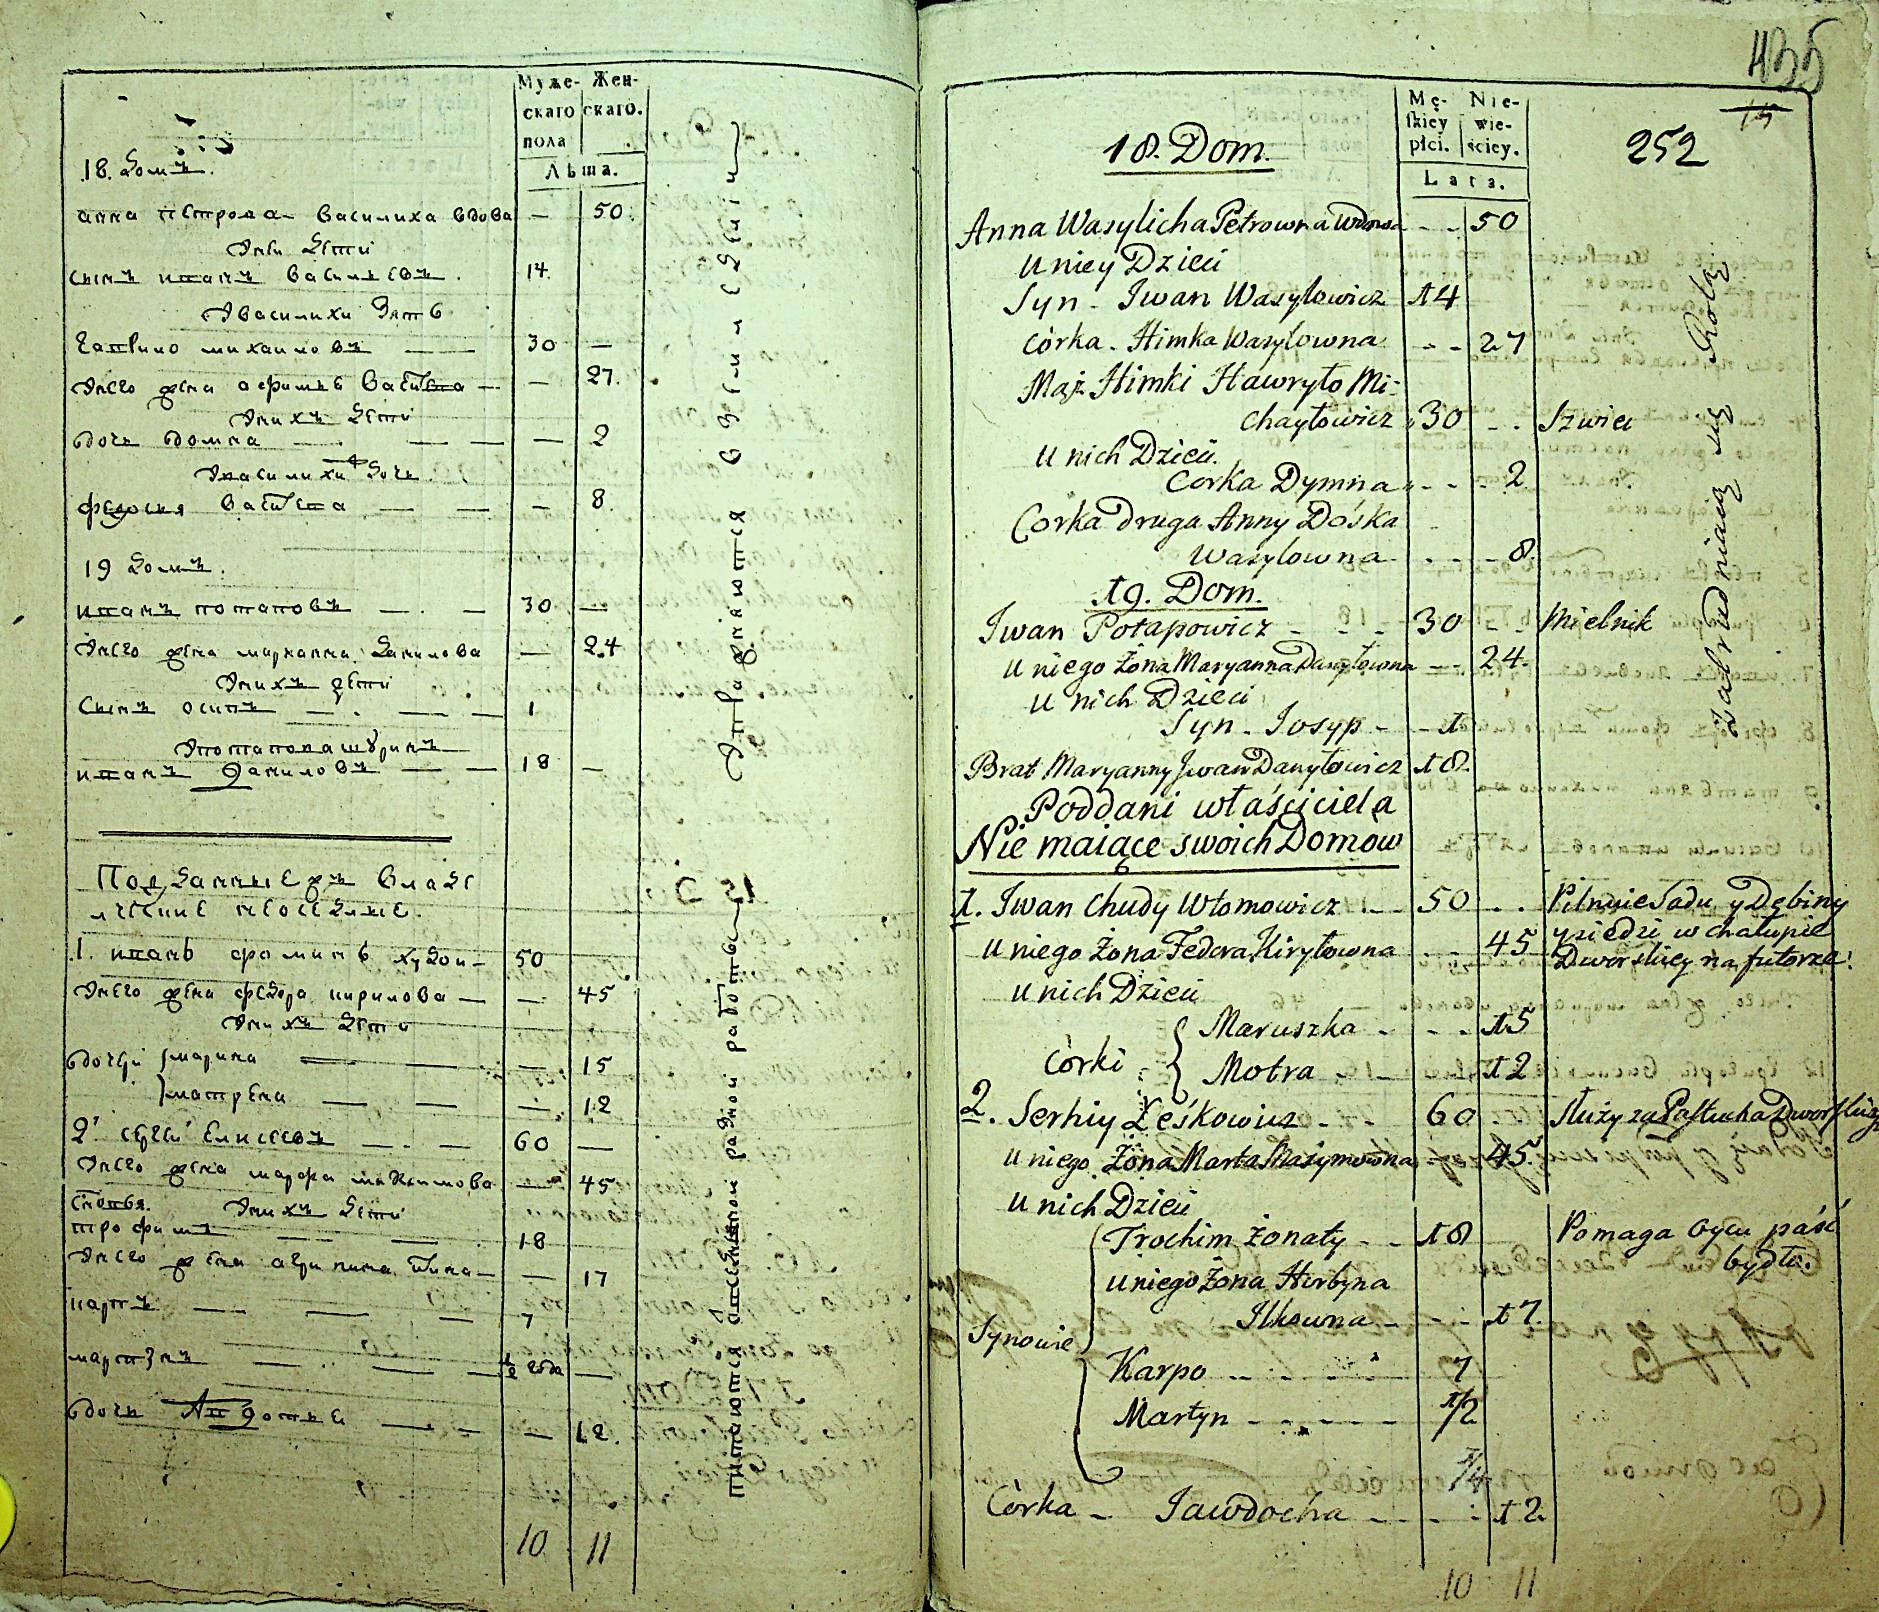 Муже- Жен-
скаго скаго.
пола
Лѣта.
18. Домъ.
анна петрова василиха вдова — 50
Унеи дети
сынъ иванъ василиевъ 14
Увасилихи зять
гаврило михаиловъ — 30 —
Унего жена афимья — 27.
Унихъ дети
дочь домна — — 2
Увасилихи дочь
федосия — — 8
19 домъ.
иванъ потаповъ — 30 —
Унего жена марианна данилова — 24
Унихъ дети
сынъ осипъ — 1
Употапова шуринъ
иванъ даниловъ — 18 —
Упражняются в земледелии
Подданные
1. иванъ фоминъ худои — 50
Унего жена федора кирилова — — 45
Унихъ дети
дочери марина — — 15
матрена — — 12
2. сергеи елисеевъ — 60 —
Унего жена марфа максимова — 45
Унихъ дети
трофимъ — 18
Унего жена — 17
карпъ — 7
мартынъ — 1/2 года —
дочь Авдотия — — 12.
питаются разнои работы
10 11
435
15
252
Mę- Nie-
skiey wie-
płci. ściey.
Lata.
18. Dom.
Anna Wasylicha Petrowna Wdowa - - 50
U niey Dzieci
Syn - Iwan Wasylowicz 14
Córka - Himka Wasylowna - - 27
Mąż Himki Hawryło Mi-
chayłowicz 30 - . Szwiec
U nich Dzieci.
Corka Dymna - - - 2
Corka druga Anny Dośka
Wasylowna - - - 8.
19. Dom.
Iwan Potapowicz - - - 30 - - Mielnik
U niego Żona Maryanna Danyłowna - - 24.
U nich Dzieci
Syn - Josyp - - 1
Brat Maryanny Jwan Danyłowicz 18.
Zatrudniaią się Rolą
Poddani właściciela
Nie maiące swoich Domow
1. Iwan Chudy Włomowicz - - 50 . . Pilnuie Sadu y Dębiny
y siedzi w chałupie
U niego Żona Fedora Kiryłowna - - 45 Dworskiey na futorze.
U nich Dzieci
Córki Maruszka - - - 15
Motra - - - 12
2. Serhiy Leśkowicz - - 60 - . Służy za Pastucha Dworskiego
U niego Żona Marta Maxymowna - 45.
U nich Dzieci
Synowie
Trochim żonaty - - 18 Pomaga oycu paść
bydło.
U niego żona Horbyna
Ilkowna - - - 17.
Karpo - - - - 7
Martyn - - - - - 1/2
Córka - Jawdocha - - - - 12
10 11